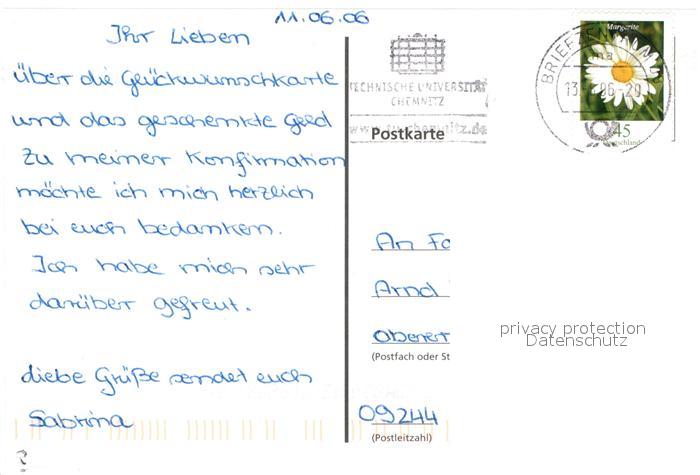 11.06.06
Ihr Lieben
über die Glückwunschkarte
und das geschenkte Geld
zu meiner Konfirmation
möchte ich mich herzlich
bei euch bedanken.
Ich habe mich sehr
darüber gefreut.
Liebe Grüße sendet euch
Sabrina
TECHNISCHE UNIVERSITÄT
CHEMNITZ
Postkarte
Margerite
BRIEFZEN
45
Deutschland
An Fa
Arnd
Oberer
(Postfach oder St
09244
(Postleitzahl)
privacy protection
Datenschutz